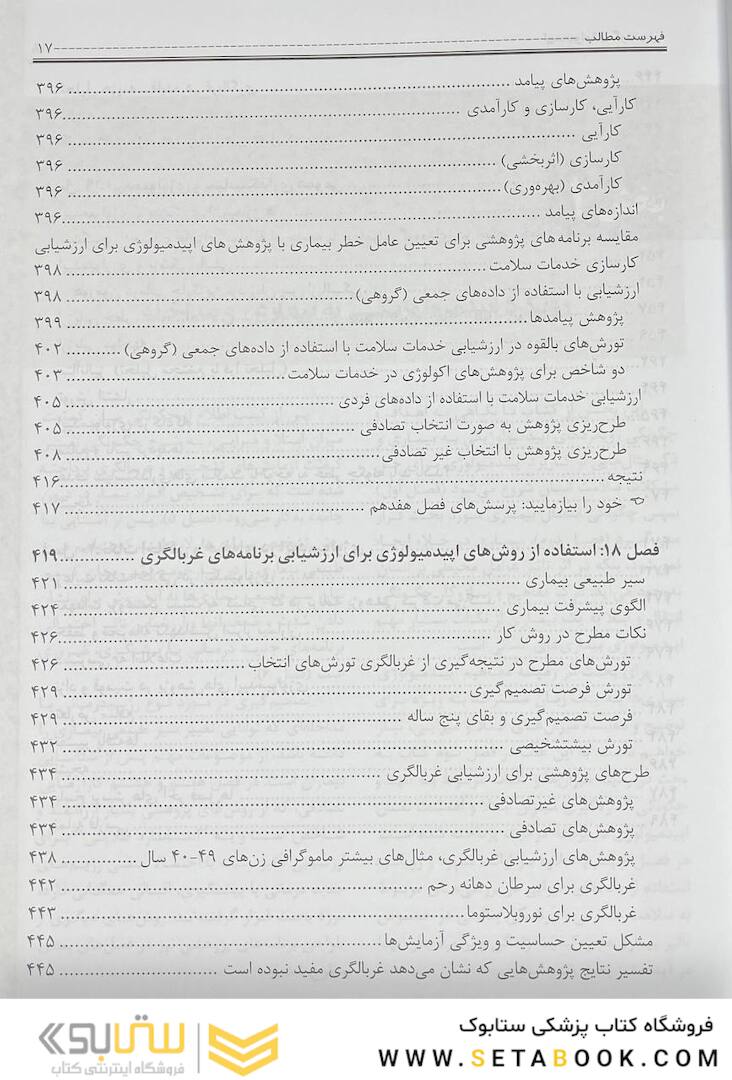 فهرست مطالب ---------- ۱۷
پژوهش‌های پیامد .......... ۳۹۶
کارآیی، کارسازی و کارآمدی .......... ۳۹۶
کارآیی .......... ۳۹۶
کارسازی (اثربخشی) .......... ۳۹۶
کارآمدی (بهره‌وری) .......... ۳۹۶
اندازه‌های پیامد .......... ۳۹۶
مقایسه برنامه‌های پژوهشی برای تعیین عامل خطر بیماری با پژوهش‌های اپیدمیولوژی برای ارزشیابی
کارسازی خدمات سلامت .......... ۳۹۸
ارزشیابی با استفاده از داده‌های جمعی (گروهی) .......... ۳۹۸
پژوهش پیامدها .......... ۳۹۹
تورش‌های بالقوه در ارزشیابی خدمات سلامت با استفاده از داده‌های جمعی (گروهی) .......... ۴۰۲
دو شاخص برای پژوهش‌های اکولوژی در خدمات سلامت .......... ۴۰۳
ارزشیابی خدمات سلامت با استفاده از داده‌های فردی .......... ۴۰۵
طرح‌ریزی پژوهش به صورت انتخاب تصادفی .......... ۴۰۵
طرح‌ریزی پژوهش با انتخاب غیر تصادفی .......... ۴۰۸
نتیجه .......... ۴۱۶
خود را بیازمایید: پرسش‌های فصل هفدهم .......... ۴۱۷
فصل ۱۸: استفاده از روش‌های اپیدمیولوژی برای ارزشیابی برنامه‌های غربالگری .......... ۴۱۹
سیر طبیعی بیماری .......... ۴۲۱
الگوی پیشرفت بیماری .......... ۴۲۴
نکات مطرح در روش کار .......... ۴۲۶
تورش‌های مطرح در نتیجه‌گیری از غربالگری تورش‌های انتخاب .......... ۴۲۶
تورش فرصت تصمیم‌گیری .......... ۴۲۹
فرصت تصمیم‌گیری و بقای پنج ساله .......... ۴۲۹
تورش بیشتشخیصی .......... ۴۳۲
طرح‌های پژوهشی برای ارزشیابی غربالگری .......... ۴۳۴
پژوهش‌های غیرتصادفی .......... ۴۳۴
پژوهش‌های تصادفی .......... ۴۳۴
پژوهش‌های ارزشیابی غربالگری، مثال‌های بیشتر ماموگرافی زن‌های ۴۹-۴۰ سال .......... ۴۳۸
غربالگری برای سرطان دهانه رحم .......... ۴۴۲
غربالگری برای نوروبلاستوما .......... ۴۴۳
مشکل تعیین حساسیت و ویژگی آزمایش‌ها .......... ۴۴۵
تفسیر نتایج پژوهش‌هایی که نشان می‌دهد غربالگری مفید نبوده است .......... ۴۴۵
فروشگاه کتاب پزشکی ستابوک
WWW.SETABOOK.COM
ستابوک
فروشگاه اینترنتی کتاب